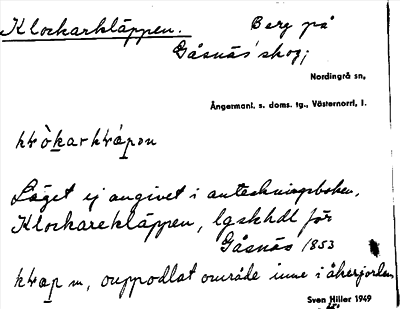 Klockarkläppen. Berg på
Gåsnäs' skog;
Nordingrå sn,
Ångermanl. s. doms. tg., Västernorrl. l.
Läget ej angivet i anteckningsboken,
Klockarekläppen, lgskhdl för
Gåsnäs 1853
m, ouppodlat område inne i åkerjorden
Sven Hiller 1949